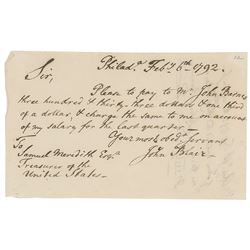 Philada. Feby. 6th. 1792.
Sir,
Please to pay to Mr. John Barnes
three hundred & thirty three dollars & one third
of a dollar, & charge the same to me on account
of my salary for the last quarter—
Your most obedt. servant
John Blair
To
Samuel Meredith Esqr.
Treasurer of the
United States—